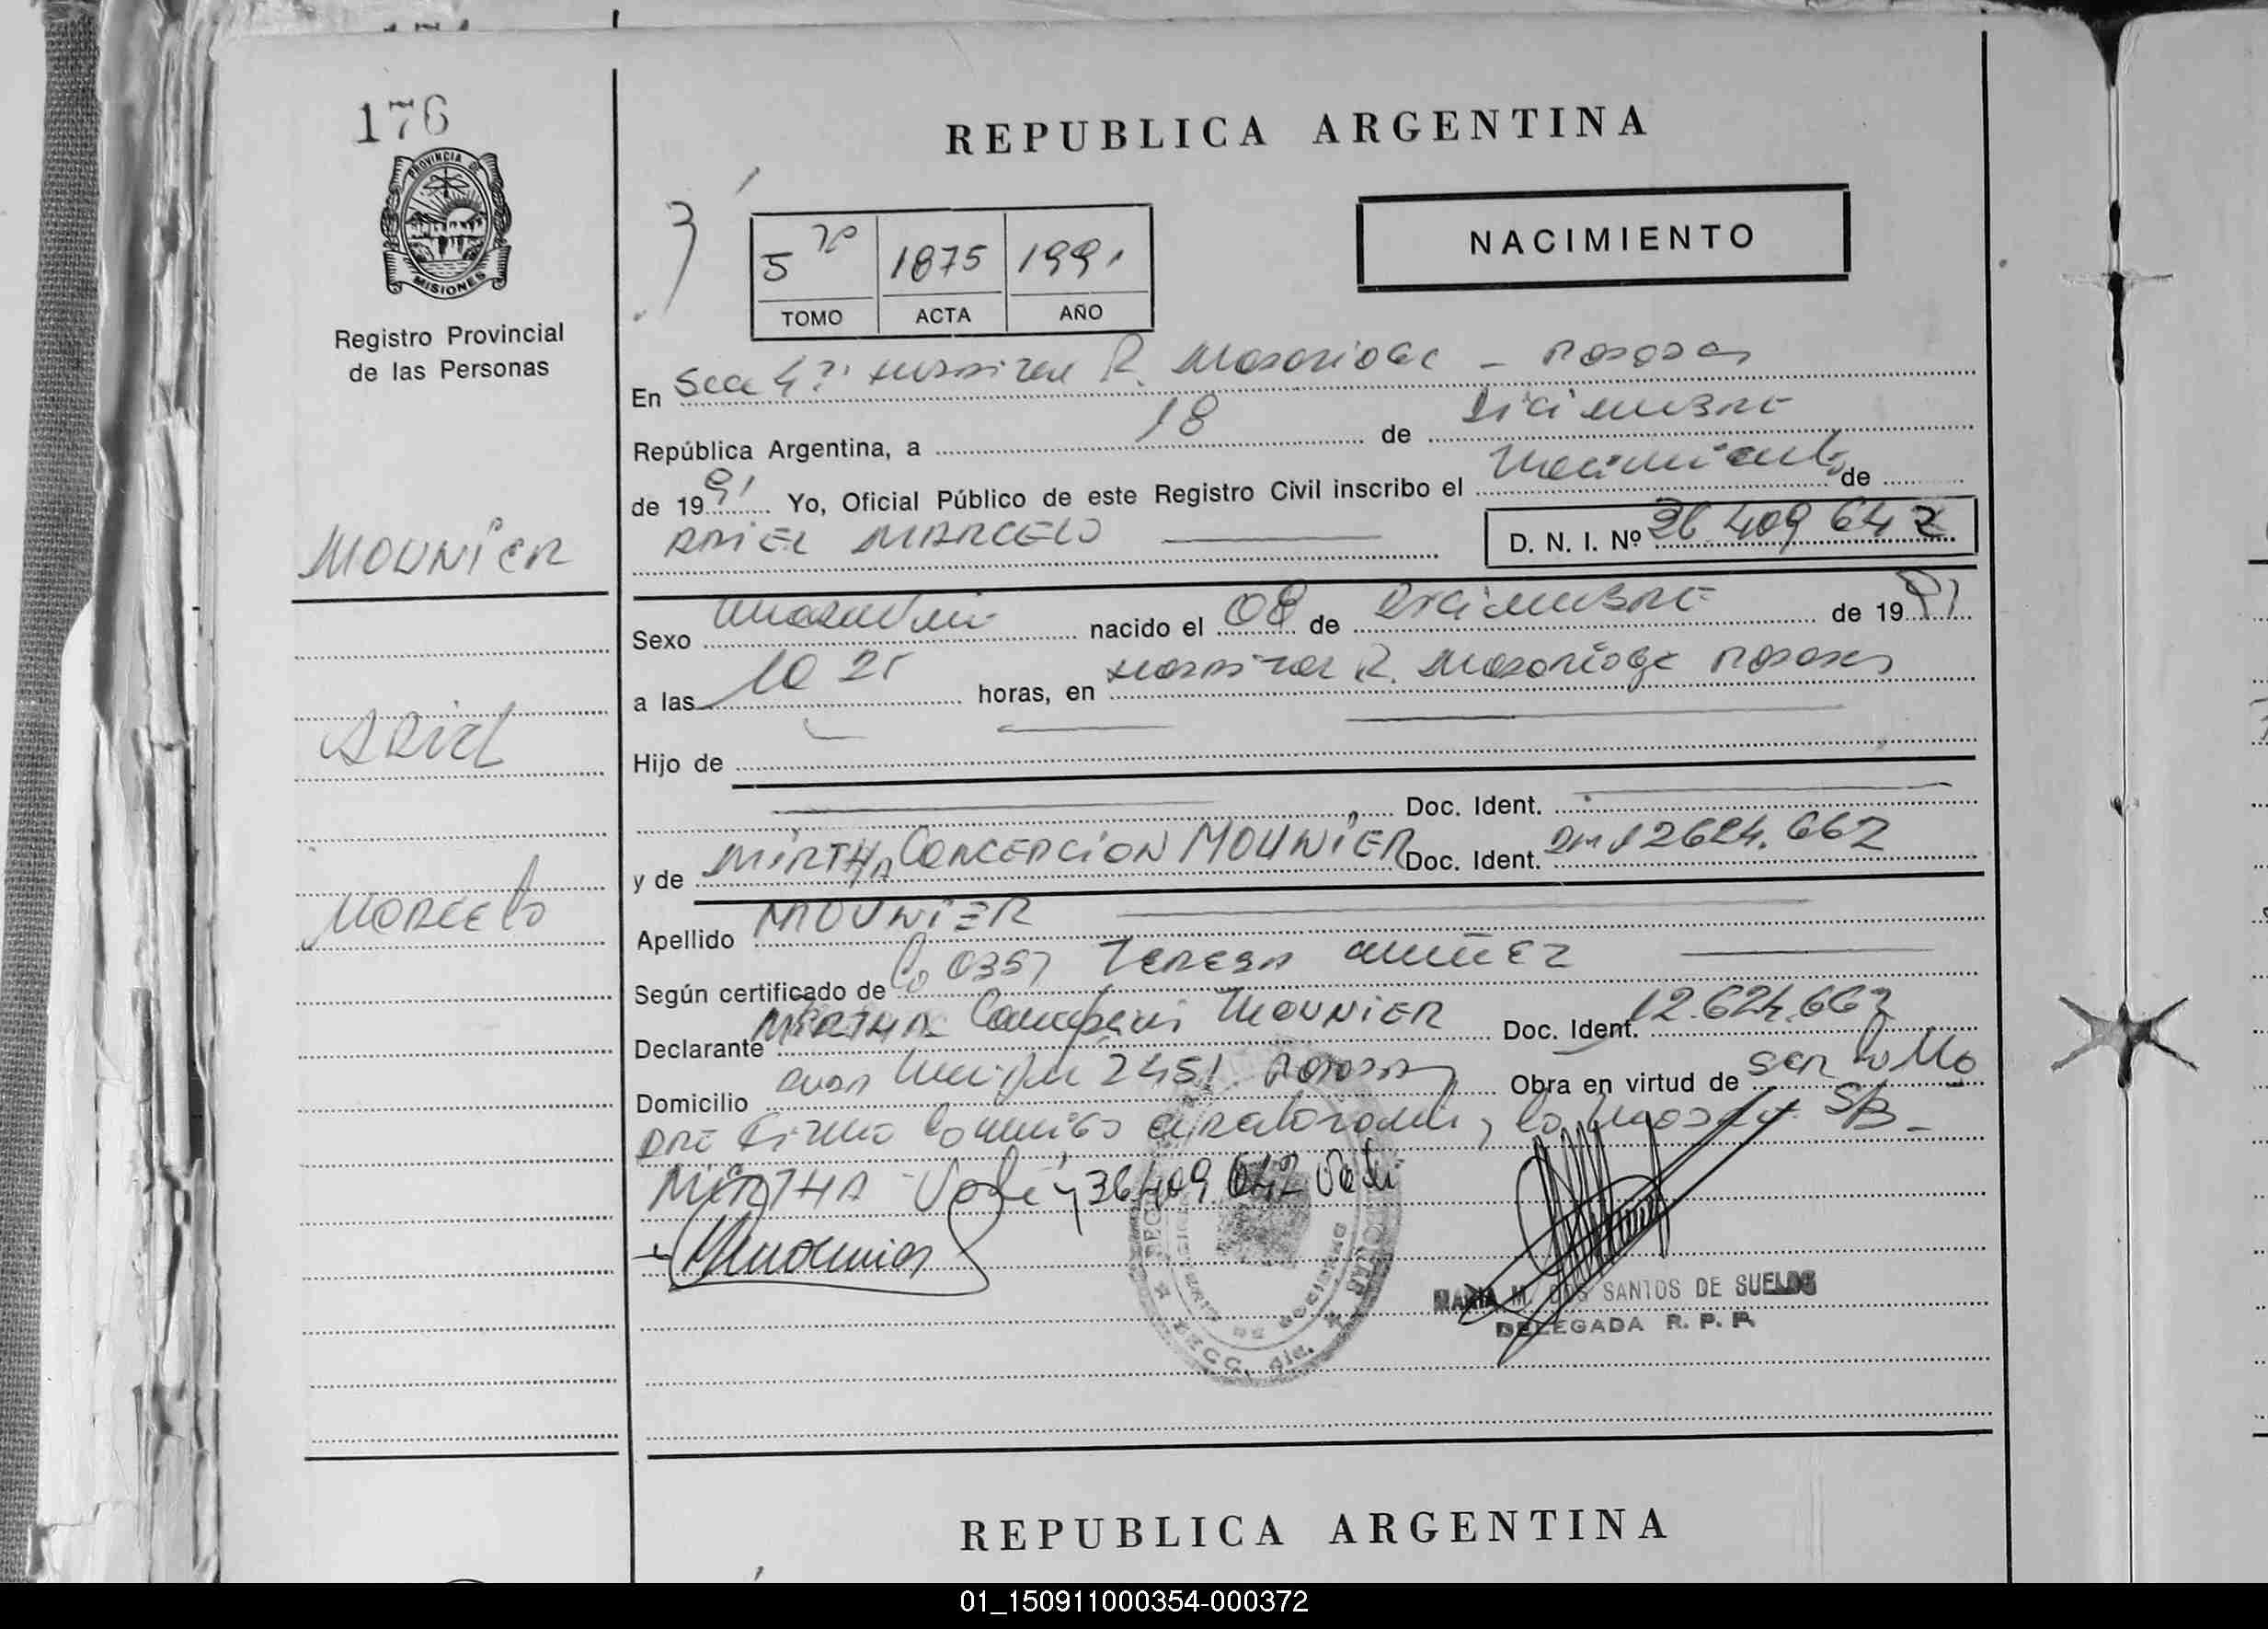 176
PROVINCIA DE
MISIONES
Registro Provincial
de las Personas
MOUNIER
ARIEL
MARCELO
REPUBLICA ARGENTINA
5 to 1875 1991
TOMO ACTA AÑO
NACIMIENTO
En Secc 4ª Hospital R. Madariaga - Posadas
República Argentina, a 18 de Diciembre
de 1991 Yo, Oficial Público de este Registro Civil inscribo el Nacimiento de
ARIEL MARCELO D. N. I. Nº 36 409 642
Sexo masculino nacido el 08 de Diciembre de 1991
a las 10 25 horas, en Hospital R. Madariaga Posadas
Hijo de
Doc. Ident.
y de MIRTHA CONCEPCION MOUNIER Doc. Ident. 12624.662
Apellido MOUNIER
Según certificado de 0357 TERESA
Declarante MIRTHA Concepcion MOUNIER Doc. Ident. 12.624.662
Domicilio 2451 Posadas Obra en virtud de ser la
que firma conmigo la S/B-
MIRTHA Vale y 36 409 642 Vale
MARIA M. DOS SANTOS DE SUELDO
DELEGADA R. P. P.
REPUBLICA ARGENTINA
01_150911000354-000372